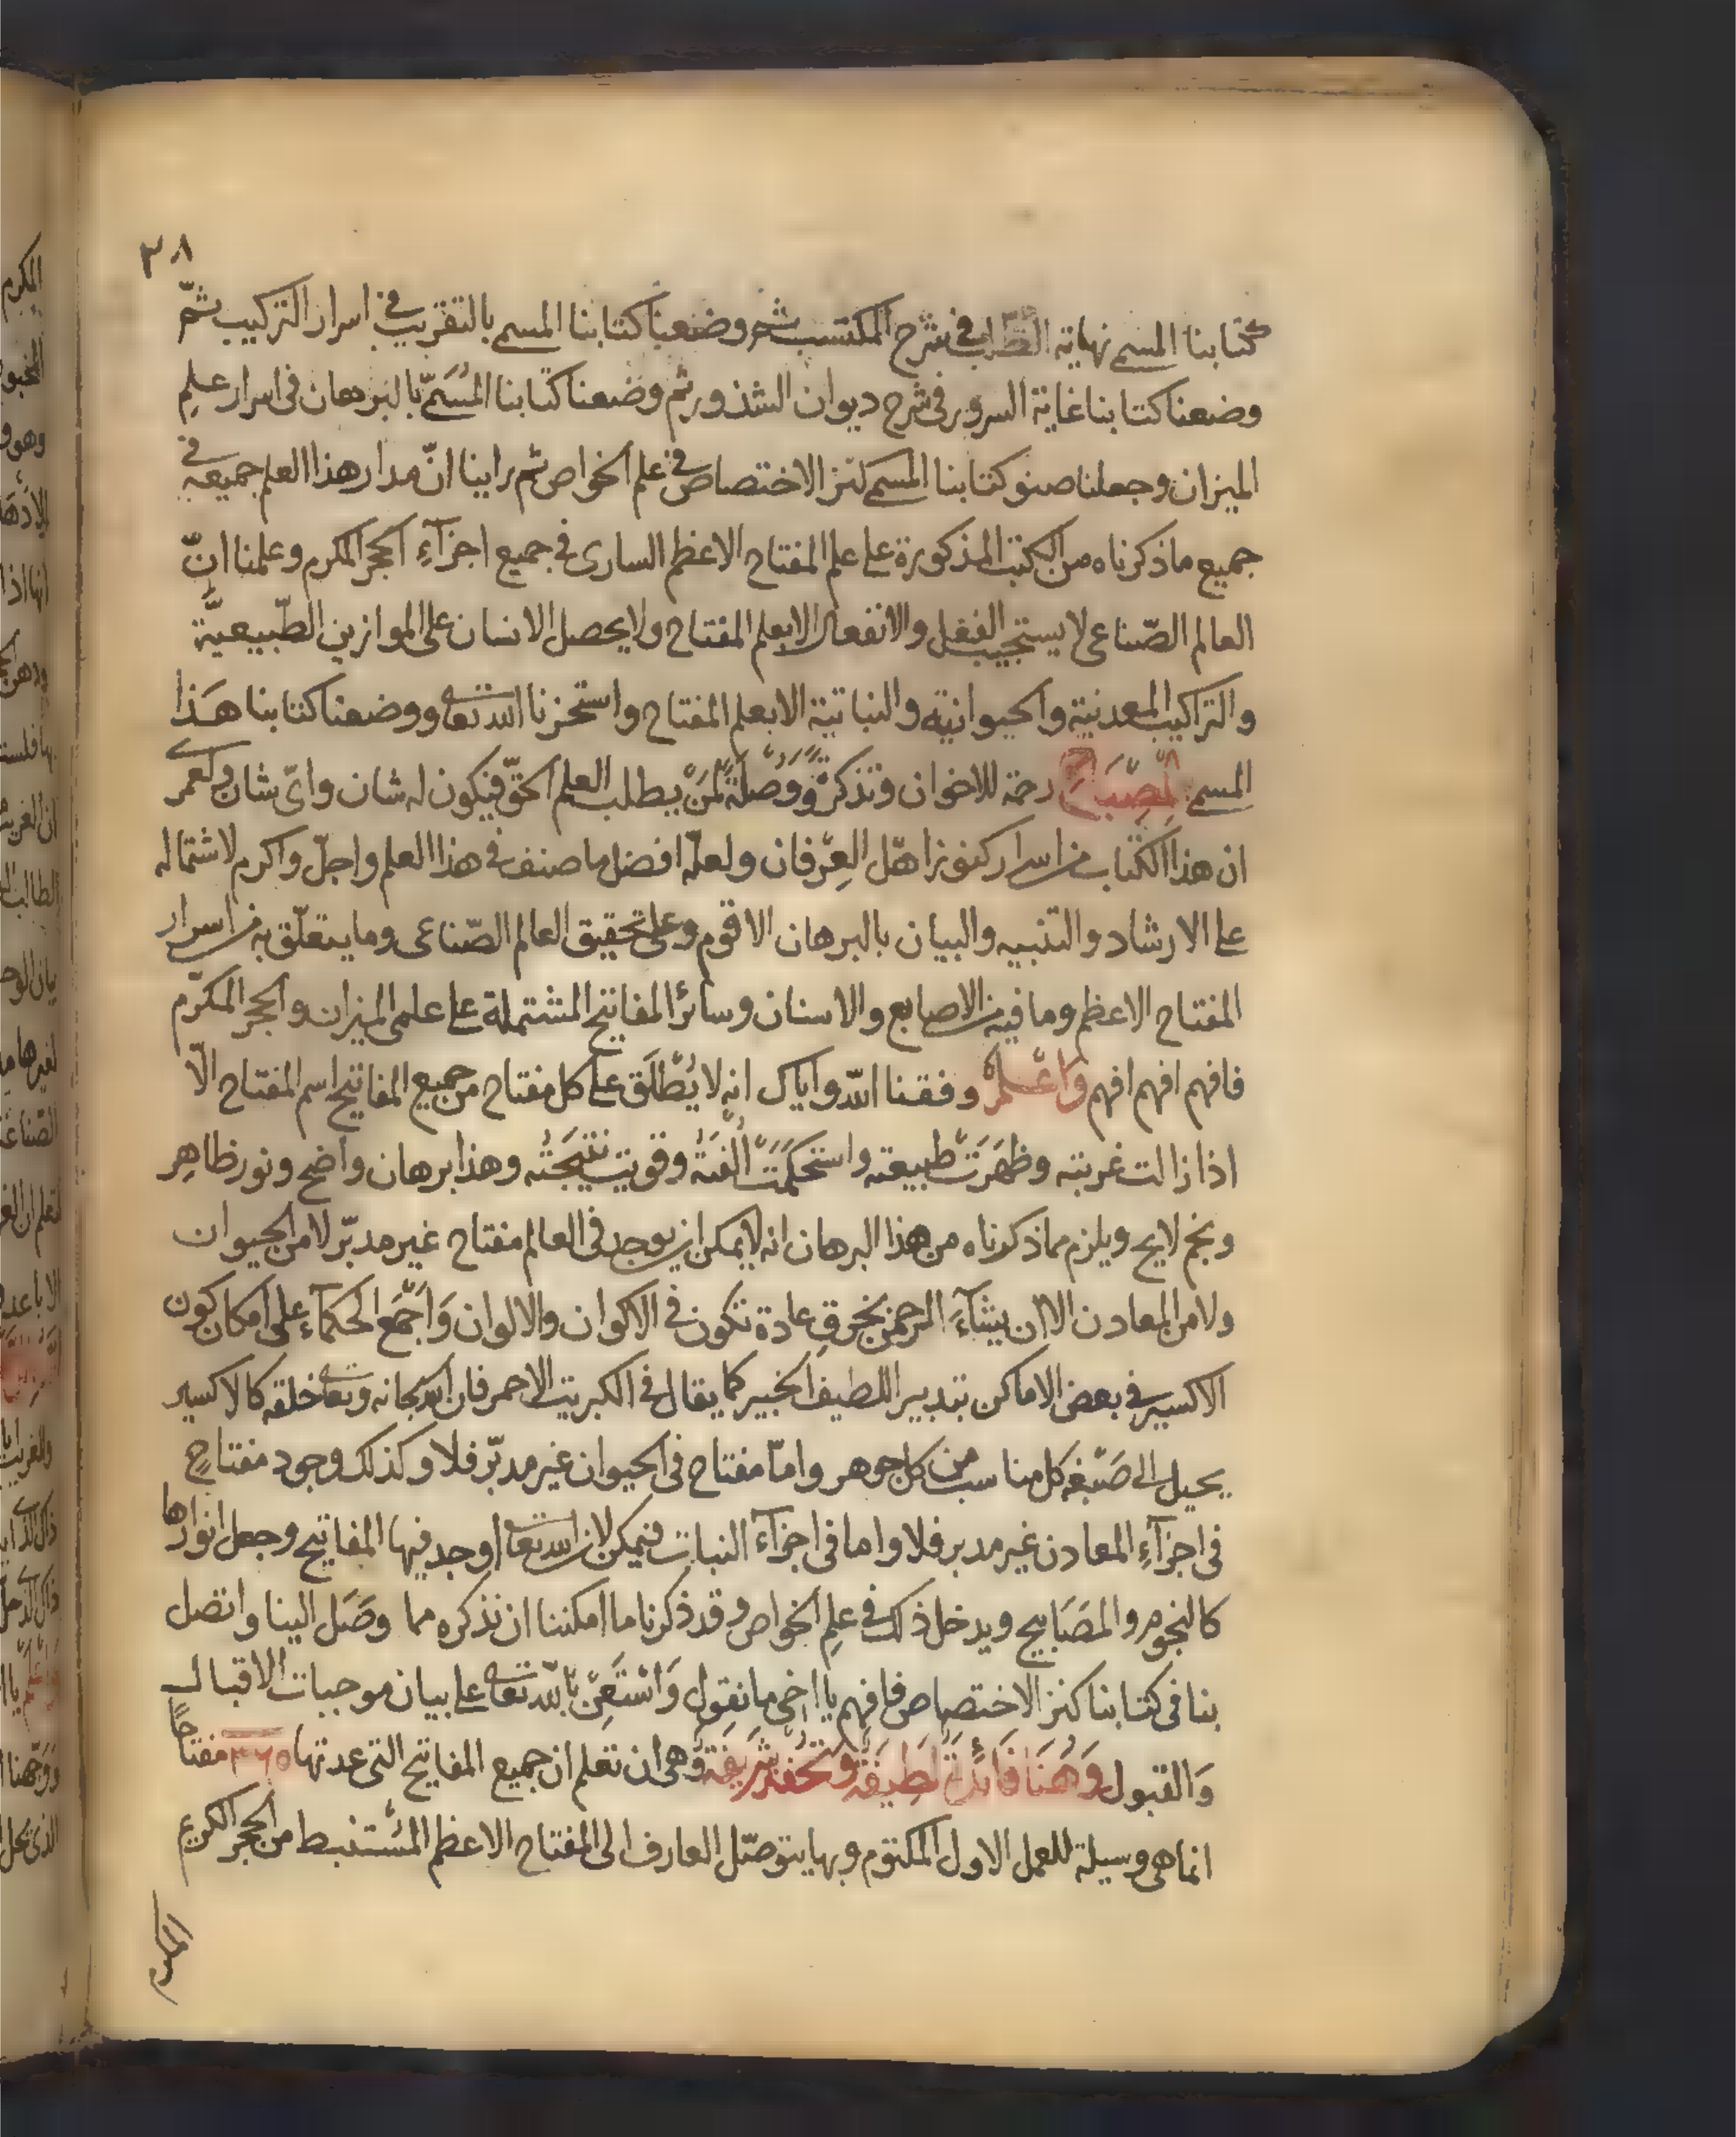 ٣٨
كتابنا المسمى نهاية الطلب في شرح المكتسب ثم وضعنا كتابنا المسمى بالتقريب في اسرار التركيب ثمّ
وضعنا كتابنا غاية السرور في شرح ديوان الشذور ثم وضعنا كتابنا المُسَمّى بالبرهان في اسرار علمِ
الميزان وجعلنا صنو كتابنا المسمى كنز الاختصاص في علم الخواص ثم راينا انّ مدار هذا العلم جميعه في
جميع ما ذكرناه من الكتب المذكورة على علم المفتاح الاعظم السارى في جميع اجزآءِ الحجر المكرم وعلمنا انّ
العالم الصّناعى لا يستجيب للفعل والانفعال الا بعلم المفتاح ولا يحصل الانسان على الموازين الطّبيعيّة
والتراكيب المعدنية والحيوانية والنباتية الا بعلم المفتاح واستخرنا الله تعالى ووضعنا كتابنا هَذا
المسمى المِصْبَاح رحمة للاخوان وتذكرةً وَوُصْلَةً لمَنْ يطلب العلم الحقّ فيكون له شان واىّ شان ولعمرى
ان هذا الكتاب من اسرار كنوز اهْل العِرْفان ولعلّه افضل ما صنف في هذا العلم واجلّ واكرم لاشتماله
على الارشاد والتنبيه والبيان بالبرهان الاقوم وعلى تحقيق العالم الصّناعى وما يتعلّق به من اسرار
المفتاح الاعظم وما فيه من الاصابع والاسنان وسائر المفاتيح المشتملة على علمى الميزان والحجر المكرّم
فافهم افهم افهم وَاعْلَمْ وفقنا الله واياك انه لا يُطْلَق على كل مفتاح من جميع المفاتيح اسم المفتاح الّا
اذا زالت غربته وظهَرَتْ طبيعته واسْتَحكَمَتْ الْفَتهُ وقويت نتيجَتُه وهذا برهان واضح ونور ظاهِر
ونجم لايح ويلزم مما ذكرناه من هذا البرهان انه لا يمكن ان يوجد في العالم مفتاح غير مدبّر لا من الحيوان
ولا من المعادن الا ان يشآءَ الرحمن بخرقِ عادة تكون في الاكوان والالوان وَاَجْمَعَ الحكمآء على امكان كون
الاكسير في بعض الاماكن بتدبير اللطيف الخبير كما يقال في الكبريت الاحمر فان الله سبحانه وتعالى خلقه كالاكسير
يحيل الى صَبْغه كل مناسب من كل جوهر وامّا مفتاح في الحيوان غير مدبّر فلا وكذلك وجود مفتاحٍ
فى اجزآءِ المعادن غير مدبر فلا واما فى اجزآء النبات فيمكن لان الله تعالى اوجد فيها المفاتيح وجعل انوارها
كالنجوم والمصَابيح ويدخل ذلك في علِم الخواص وقد ذكرنا ما امكننا ان نذكره مما وصَل الينا واتصل
بنا فى كتابنا كنز الاختصاص فافهم يا اخى ما نقول وَاسْتَعِنْ باللّه تعالى على بيان موجبات الاقبال
وَالقبول وَهُنَا فَائدَةٌ لطِيفَةٌ وتحْفَة شَريفَة وَهى ان تعلم ان جميع المفاتيح التى عدتها ٣٦٥ مفتاحًا
انما هى وسيلة للعمل الاول المكتوم وبها يتوصّل العارف الى المفتاح الاعظم المسْتنبط من الحجر الكريم